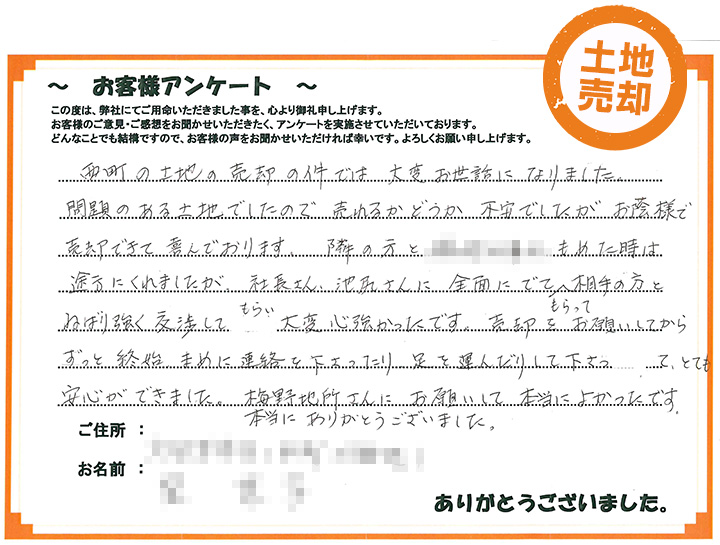 土地
売却
～ お客様アンケート ～
この度は、弊社にてご用命いただきました事を、心より御礼申し上げます。
お客様のご意見・ご感想をお聞かせいただきたく、アンケートを実施させていただいております。
どんなことでも結構ですので、お客様の声をお聞かせいただければ幸いです。よろしくお願い申し上げます。
西町の土地の売却の件では 大変お世話になりました。
問題のある土地でしたので 売れるかどうか 不安でしたが お蔭様で
売却できて 喜んでおります。 隣の方と もめた時は
途方にくれましたが、社長さん、池 さんに 全面にでて 相手の方と
もらい もらって
ねばり強く交渉して 大変心強かったです。売却を お願いしてから
ずっと 終始 まめに連絡を下さったり、足を運んだりして下さっ て、とても
安心ができました。梅野地所さんに お願いして 本当によかったです。
本当に ありがとうございました。
ご住所 :
お名前 :
ありがとうございました。